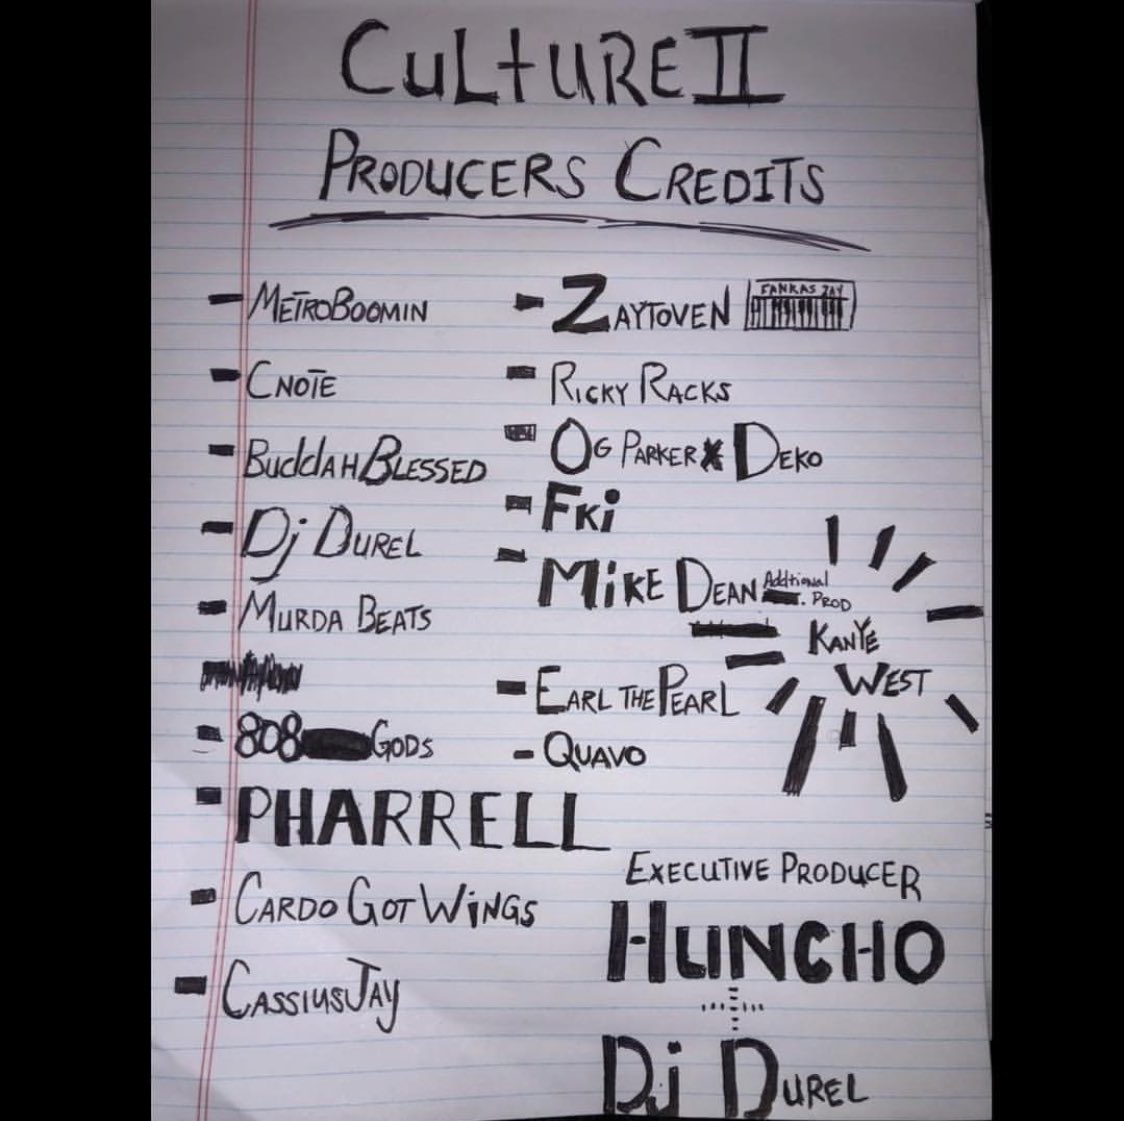 CULTURE II
PRODUCERS CREDITS
- METROBOOMIN
- CNOTE
- BuddAHBLESSED
- Dj DUREL
- MURDA BEATS
- 808 GODS
- PHARRELL
- CARDO GOT WiNGS
- CASSIUSJAY
- ZAYTOVEN
- RICKY RACKS
- OG PARKER X DEKO
- FKi
- MiKE DEAN Addtional
. PROD
KANYE
WEST
- EARL THE PEARL
- QUAVO
EXECUTIVE PRODUCER
HUNCHO
Dj DUREL